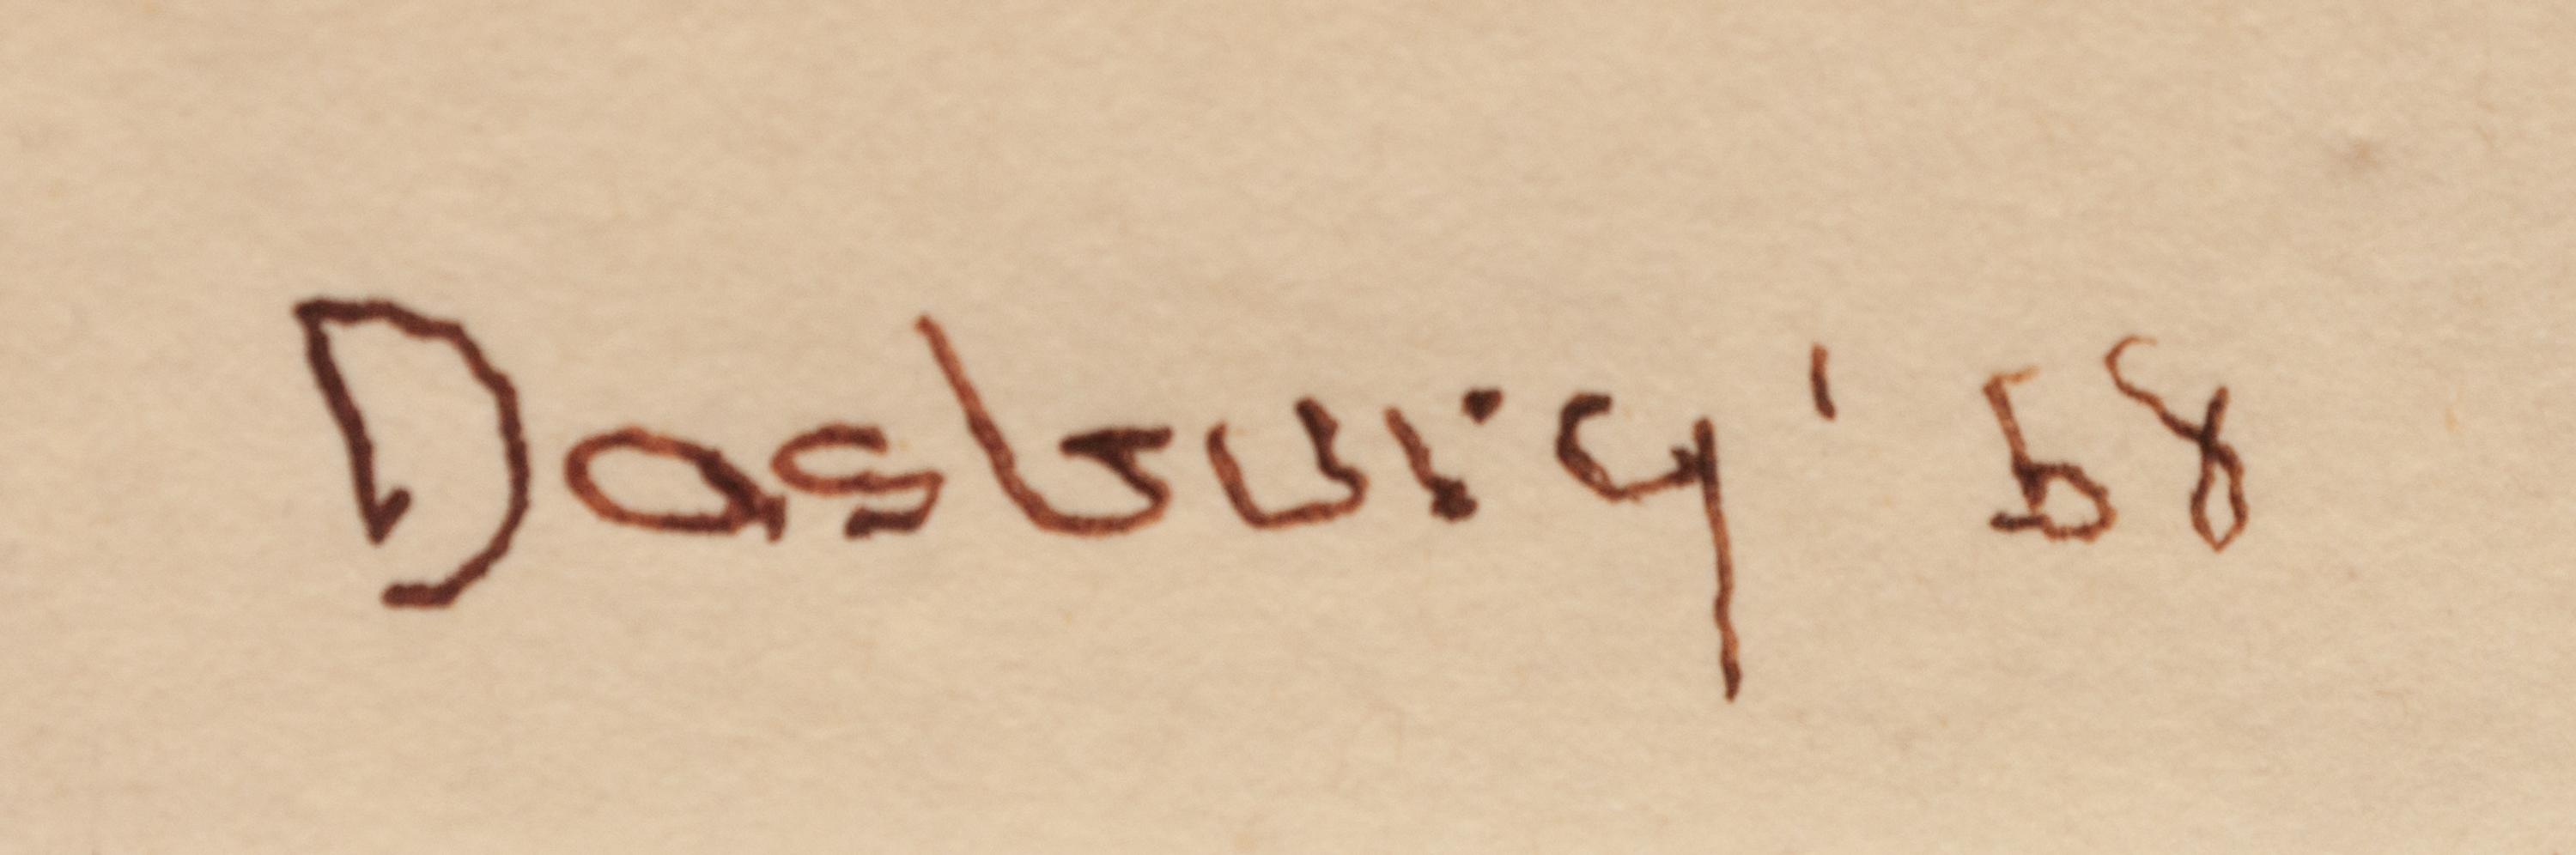 Dasburg '58